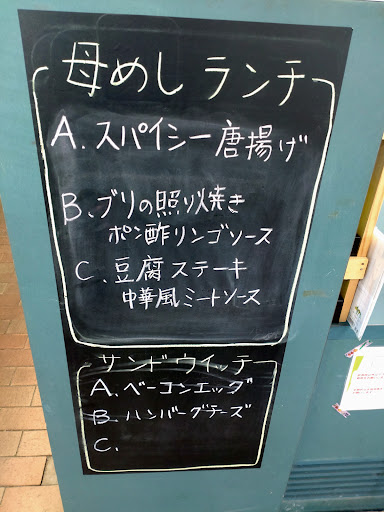 母めしランチ
A. スパイシー唐揚げ
B. ブリの照り焼き
ポン酢リンゴソース
C. 豆腐ステーキ
中華風ミートソース
サンドウィッチ
A. ベーコンエッグ
B. ハンバーグチーズ
C.